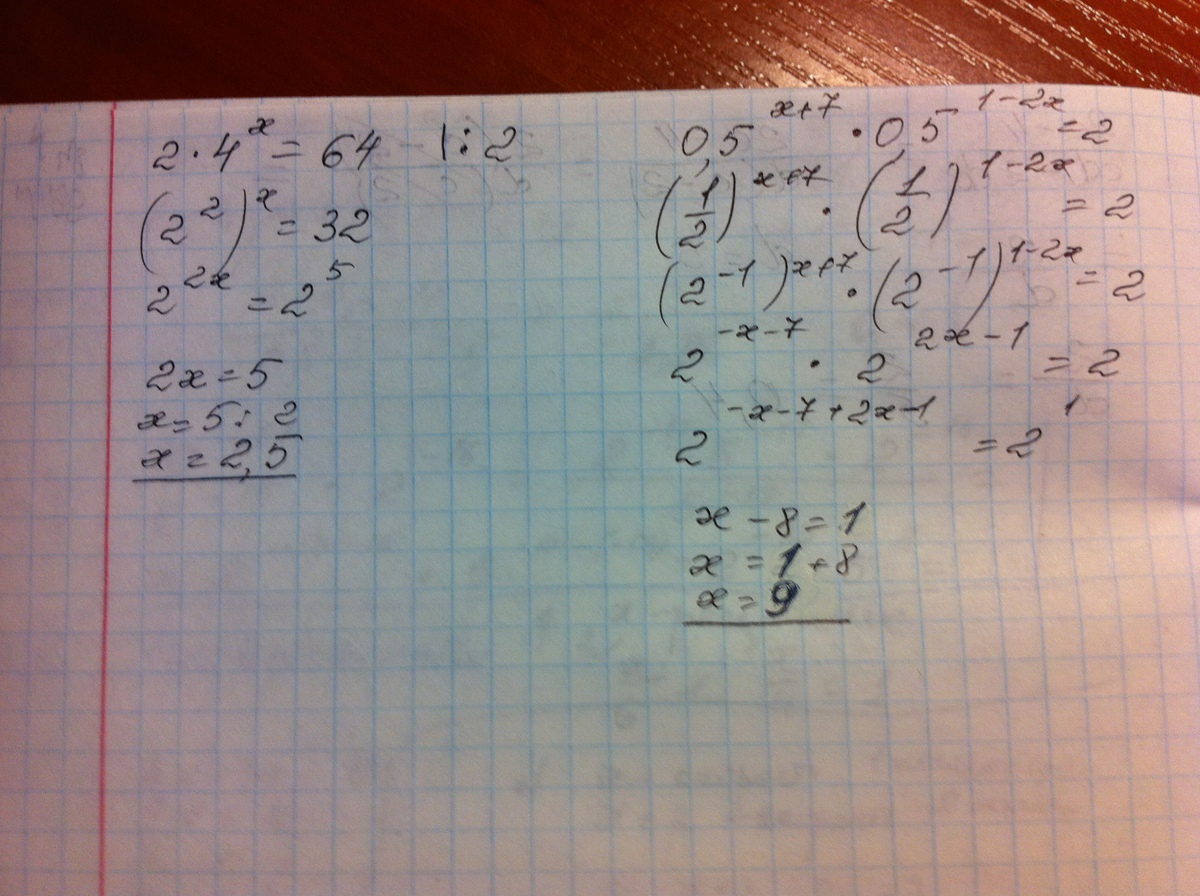 2·4^x = 64 |:2
(2^2)^x = 32
2^2x = 2^5
2x = 5
x = 5 : 2
x = 2,5
0,5^x+7 · 0,5^1-2x = 2
(1/2)^x+7 · (1/2)^1-2x = 2
(2^-1)^x+7 · (2^-1)^1-2x = 2
2^-x-7 · 2^2x-1 = 2
2^-x-7+2x-1 = 2^1
x - 8 = 1
x = 1 + 8
x = 9